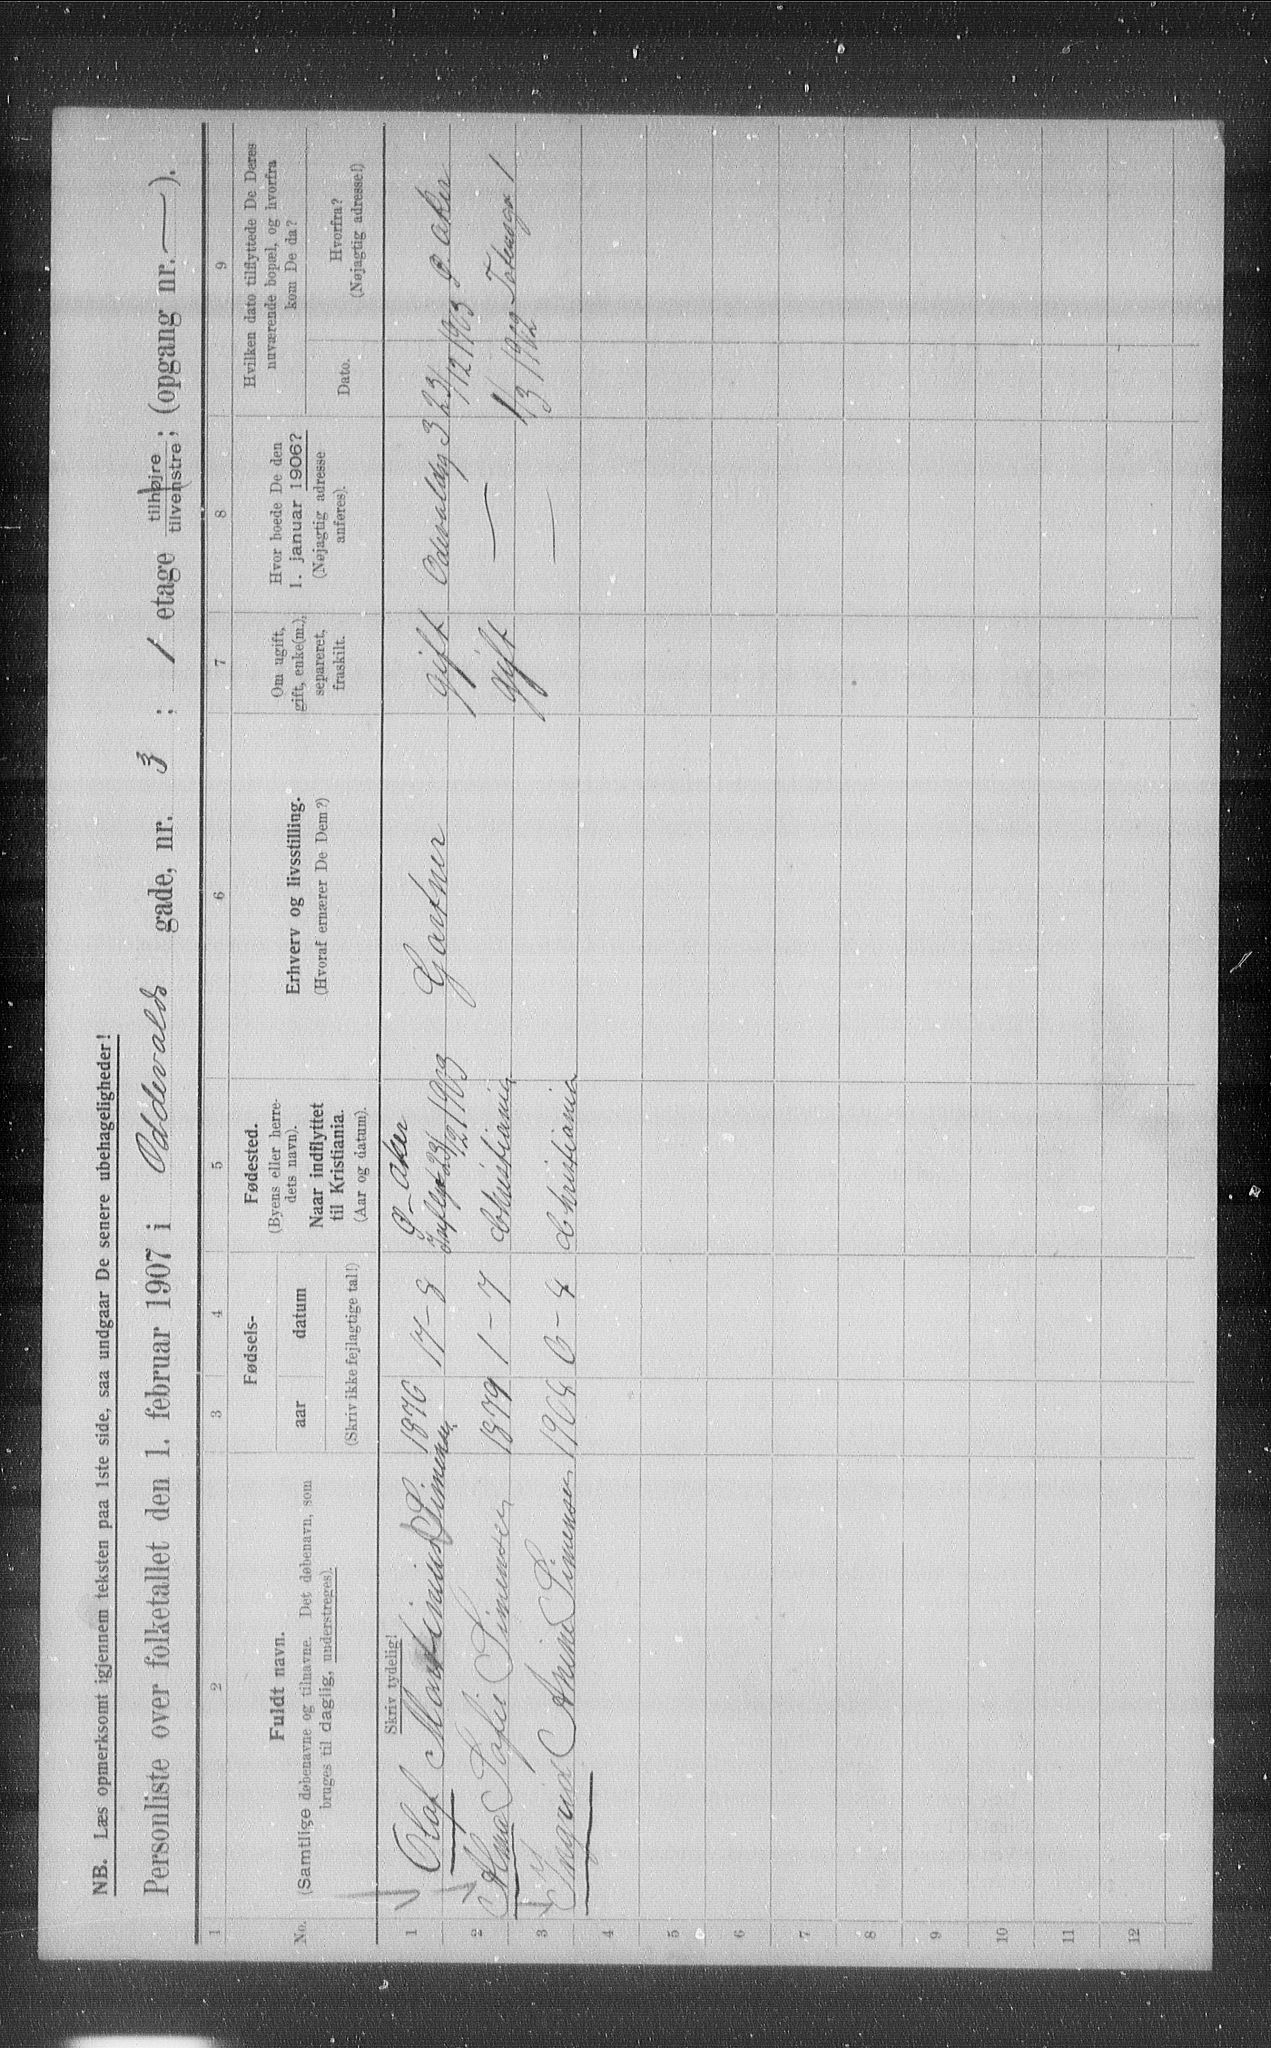 NB. Læs opmerksomt igjennem teksten paa 1ste side, saa undgaar De senere ubehageligheder!
Personliste over folketallet den 1. februar 1907 i Oddevalds gade, nr. 3 ; 1 etage tilhøjre tilvenstre ; (opgang nr. — ).
1 2 3 4 5 6 7 8 9
No.
Fuldt navn.
(Samtlige døbenavne og tilnavne. Det døbenavn, som
bruges til daglig, understreges).
Skriv tydelig!
Fødsels-
aar datum
(Skriv ikke fejlagtige tal!)
Fødested.
(Byens eller herre-
dets navn).
Naar indflyttet
til Kristiania.
(Aar og datum).
Erhverv og livsstilling.
(Hvoraf ernærer De Dem?)
Om ugift,
gift, enke(m.),
separeret,
fraskilt.
Hvor boede De den
1. januar 1906?
(Nøjagtig adresse
anføres).
Hvilken dato tilflyttede De Deres
nuværende bopæl, og hvorfra
kom De da?
Dato.
Hvorfra?
(Nøjagtig adresse!)
1 Olaf Martinius Simensen 1876 17-8 Ø. Aker
23/12 1903 Gartner gift 3 23/12 1903 Ø. Aker
2 Sofie Simensen 1879 1-7 Christiania gift — 1/3 1902 1
3 Ingrid Simensen 6-4 Christiania —
4
5
6
7
8
9
10
11
12